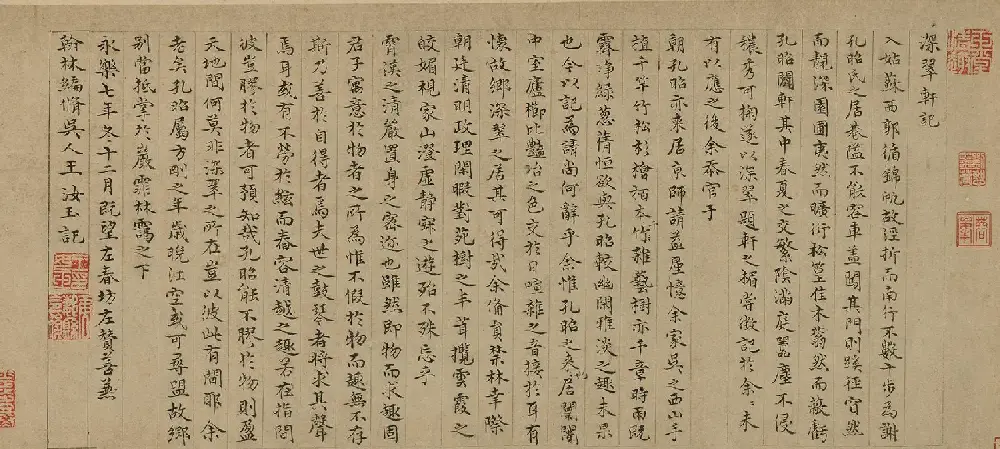 深翠軒記
入姑蘇西郭循錦帆故逕折而南行不數十步為謝
孔昭氏之居巷隘不能容車蓋闖其門則蹊徑窅然
而靚深園圃夷然而曠衍松篁佳木蓊然而蔽虧
孔昭闢軒其中春夏之交繁陰滿庭囂塵不侵
穠秀可掬遂以深翠題軒之楣嘗徵記於余余未
有以應之後余忝官于
朝孔昭亦来居京師請益堅憶余家吳之西山手
植千竿竹松杉檜栢本作雜藝樹亦千章時雨既
霽淨綠蔥蒨恒欲與孔昭較幽閑雅淡之趣未果
也今以記為請尚何辭乎余惟孔昭之来居闤闠
中室廬櫛比豔冶之色交於目喧雜之音接於耳有
懷故鄉深翠之居其可得哉余嘗貟禁林幸際
朝廷清明政理閑暇對苑樹之丰茸攬雲霞之
皎媚視家山澄虛靜寂之遊殆不殊忘乎
霄漢之清嚴置身之密邇也雖然即物而求趣固
君子寓意於物者之所為惟不假於物而趣無不存
斯乃善於自得者焉夫世之鼓琴者將求其聲
焉耳或有不勞於絃而舂容清越之趣易在指間
彼豈膠於物者可預知哉孔昭能不膠於物則盈
天地間何莫非深翠之所在豈以彼此有間耶余
老矣孔昭屬方剛之年歲晚江空或可尋盟故鄉
別當抵掌於巖霏林靄之下
永樂七年冬十二月既望左春坊左贊善兼
翰林編脩吳人王汝玉記